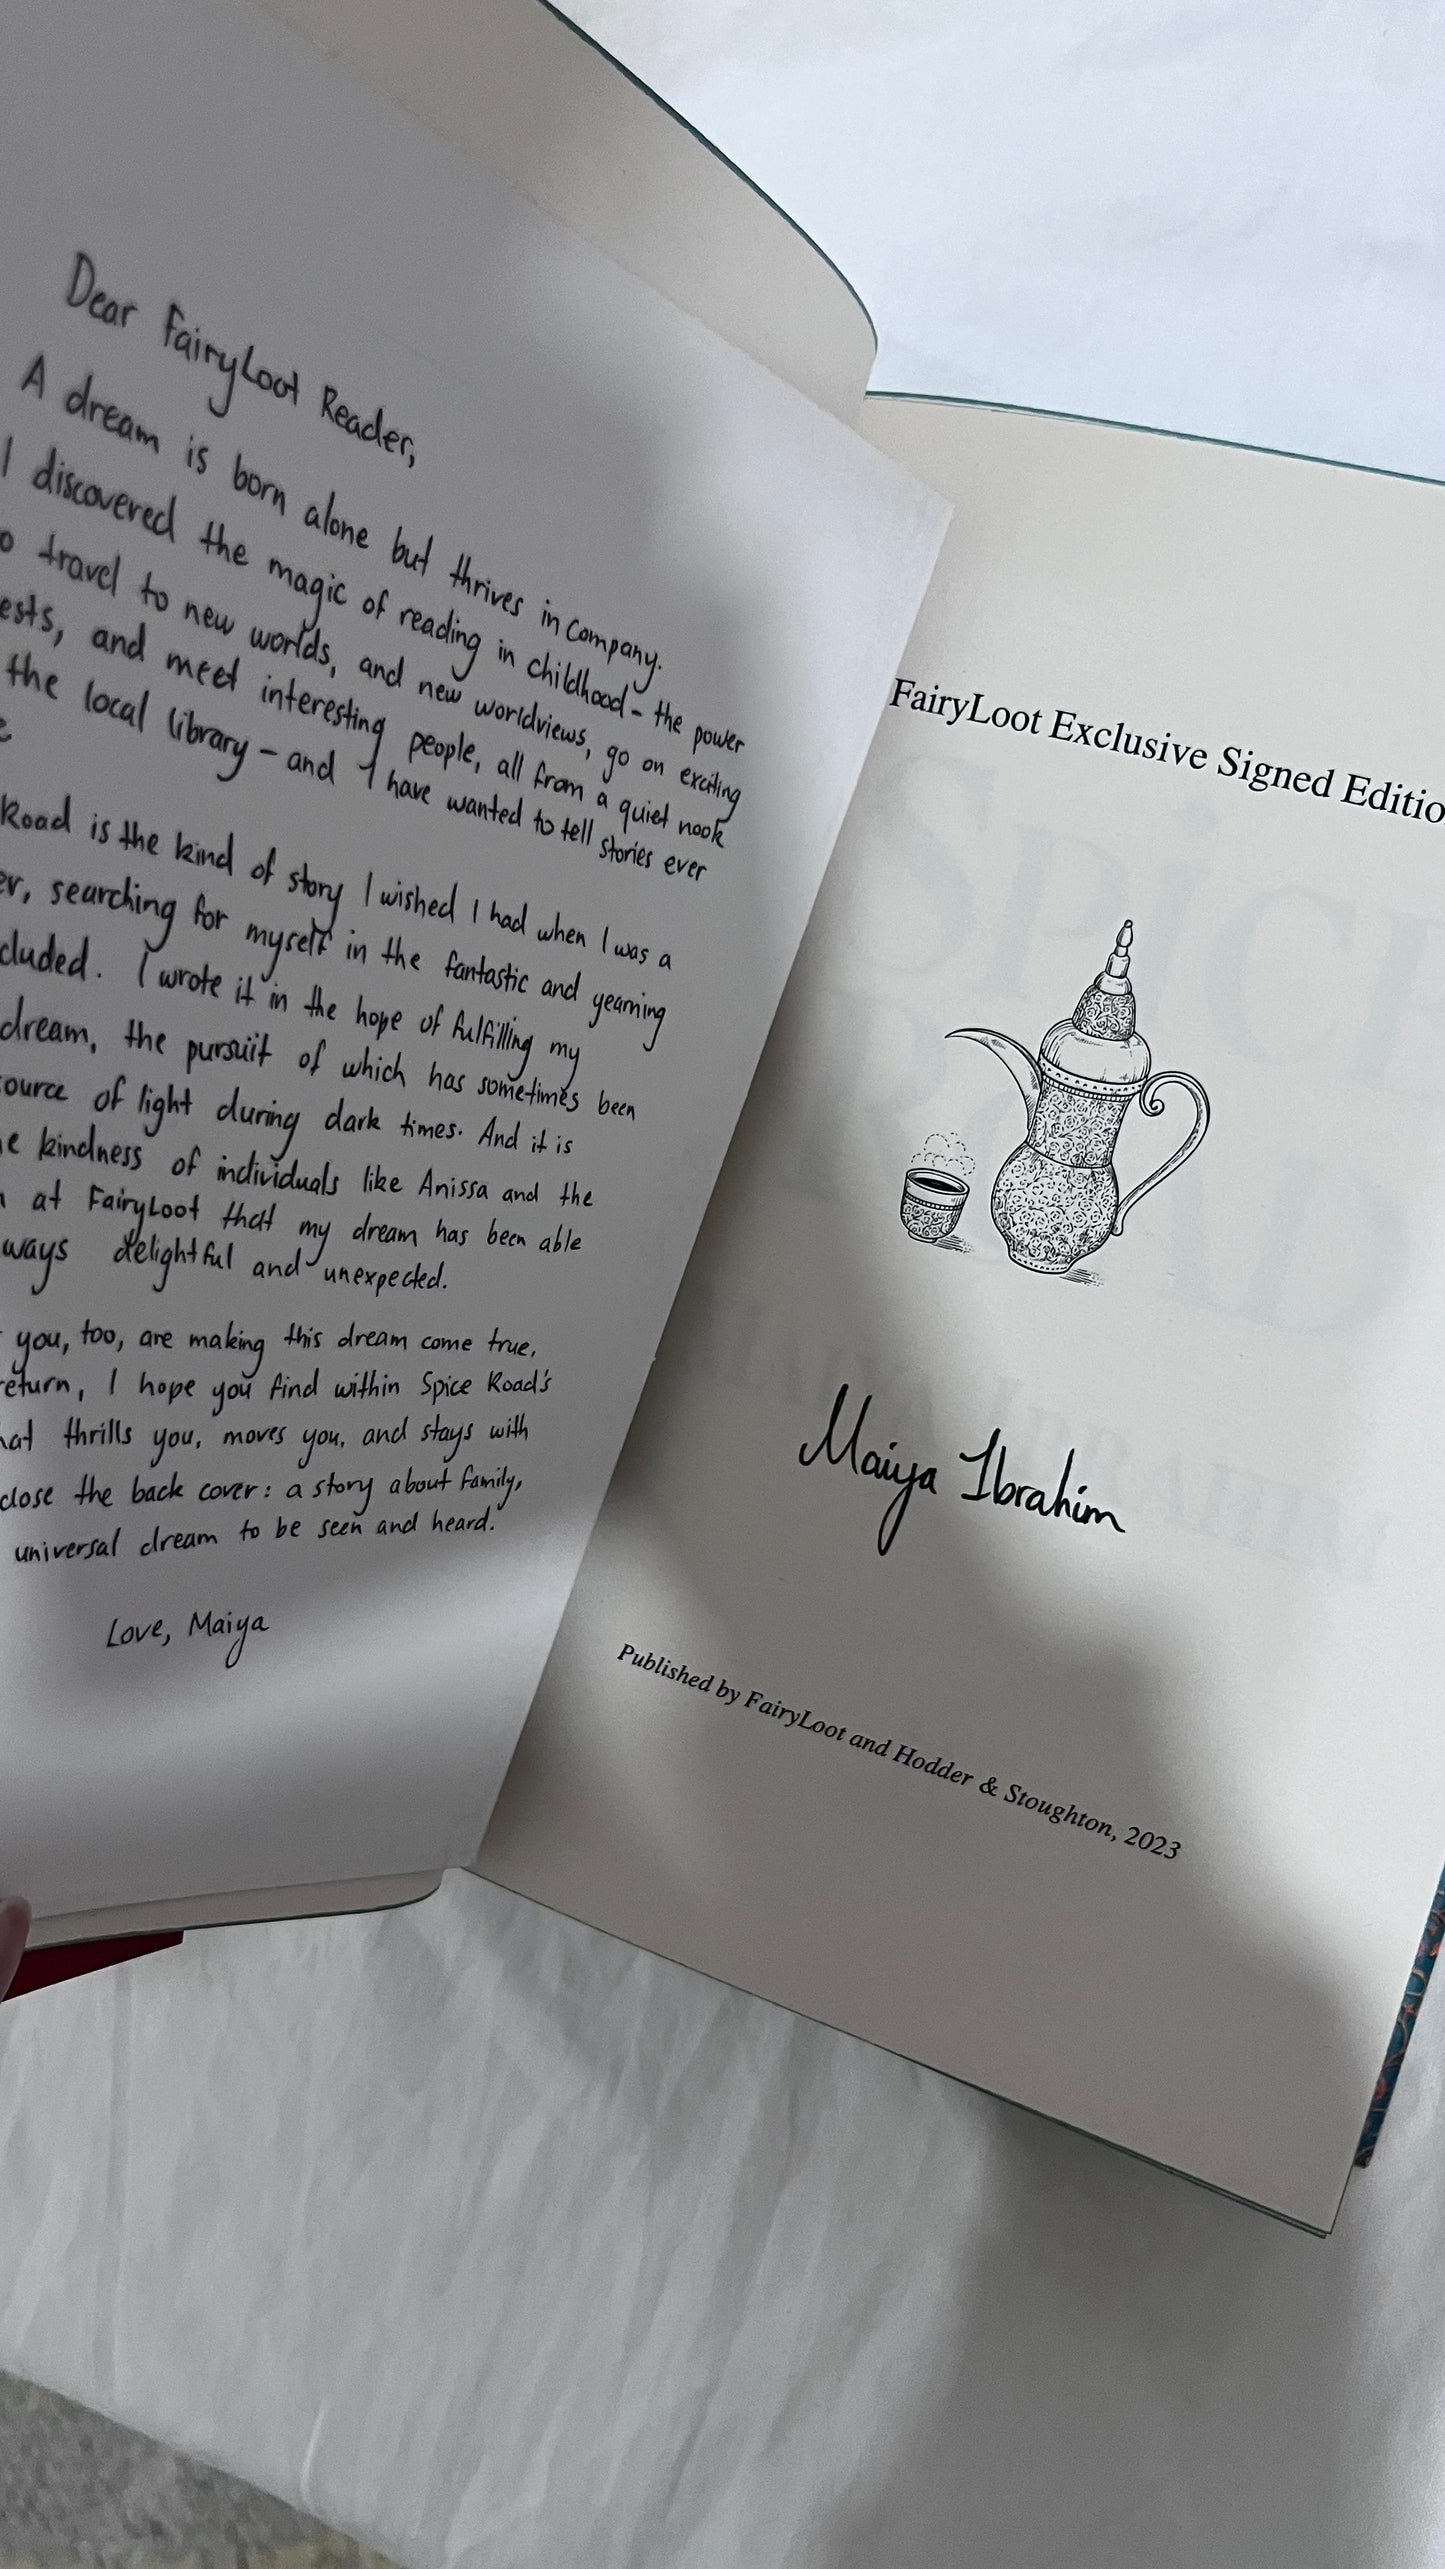 Dear FairyLoot Reader,
A dream is born alone but thrives in company.
I discovered the magic of reading in childhood – the power
travel to new worlds, and new worldviews, go on exciting
and meet interesting people, all from a quiet nook
the local library – and I have wanted to tell stories ever
Road is the kind of story I wished I had when I was a
searching for myself in the fantastic and yearning
I wrote it in the hope of fulfilling my
dream, the pursuit of which has sometimes been
of light during dark times. And it is
kindness of individuals like Anissa and the
at FairyLoot that my dream has been able
delightful and unexpected.
you, too, are making this dream come true,
I hope you find within Spice Road's
thrills you, moves you, and stays with
close the back cover: a story about family,
universal dream to be seen and heard.
Love, Maiya
FairyLoot Exclusive Signed Editio
Maiya Ibrahim
Published by FairyLoot and Hodder & Stoughton, 2023